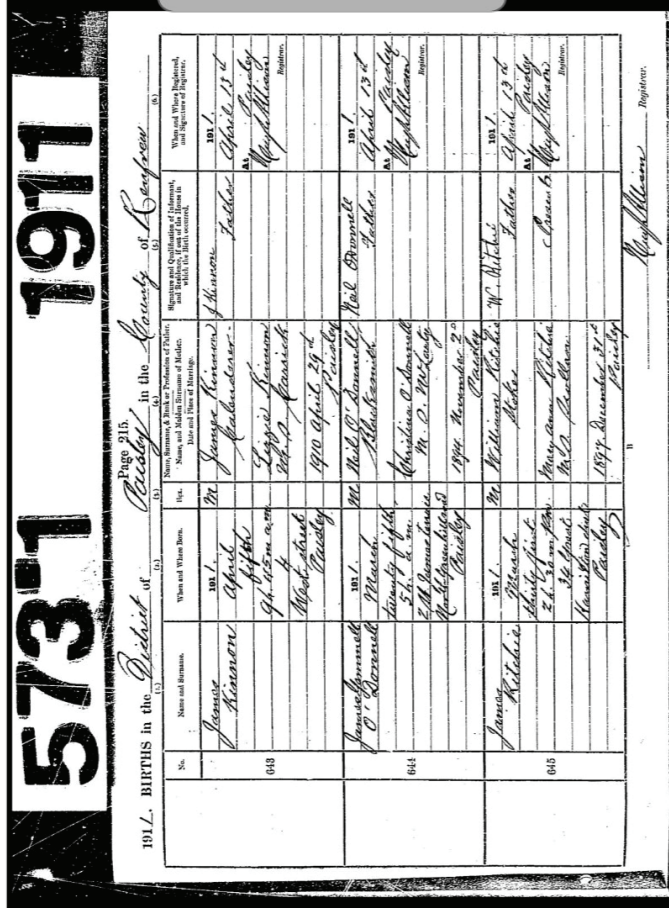 573-1 1911
Page 215.
1911. BIRTHS in the District of Paisley in the County of Renfrew
(1.) (2.) (3.) (4.) (5.) (6.)
No.
Name and Surname.
When and Where Born.
Sex.
Name, Surname, & Rank or Profession of Father.
Name, and Maiden Surname of Mother.
Date and Place of Marriage.
Signature and Qualification of Informant,
and Residence, if out of the House in
which the Birth occurred.
When and Where Registered,
and Signature of Registrar.
643
James
Kinnon
1911.
April
fifth
9h. 45m a.m.
4
West street
Paisley
M
James Kinnon
Calenderer
Lizzie Kinnon
M.S. Carrick
1910 April 29th
Paisley
J Kinnon
Father
1911.
April 13th
At Paisley
Hugh Allison
Registrar.
644
James
O'Donnell
1911.
March
twenty fifth
5h. a.m.
2 St James terrace
Paisley
M
Neil O'Donnell
Blacksmith
Christina O'Donnell
M.S.
November 2
Paisley
Neil O'Donnell
Father
1911.
April 13th
At Paisley
Hugh Allison
Registrar.
645
James
Ritchie
1911.
March
thirty first
2h. 30m
Paisley
M
William Ritchie
Mary Ann Ritchie
M.S.
1897 December 31st
Paisley
W. Ritchie
Father
1911.
April 13th
At Paisley
Hugh Allison
Registrar.
Hugh Allison Registrar.
B